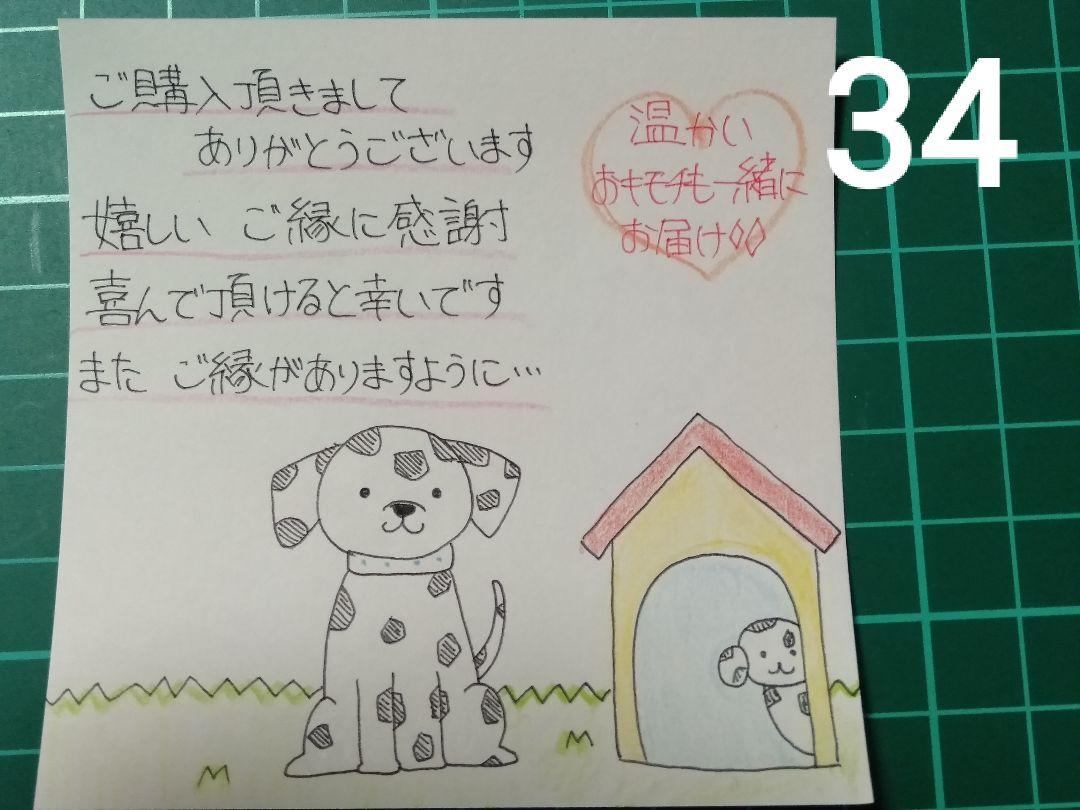 ご購入頂きまして
ありがとうございます
嬉しい ご縁に感謝
喜んで頂けると幸いです
また ご縁がありますように…
温かい
おキモチも一緒に
お届け◊◊
34